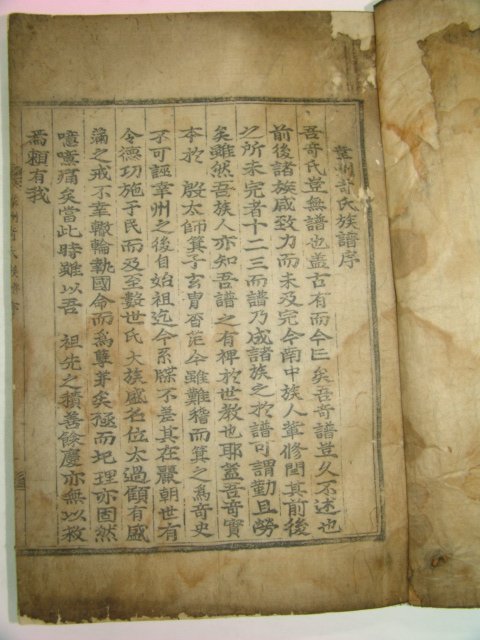 幸州奇氏族譜序
吾奇氏豈無譜也盖古有而今亡矣吾奇譜豈久不述也
前後諸族咸致力而未及完今南中族人輩修閏其前後
之所未完者十二三而譜乃成諸族之於譜可謂勤且勞
矣雖然吾族人亦知吾譜之有裨於世教也耶盖吾奇實
本於 殷太師箕子玄胄杳茫今雖難稽而箕之爲奇史
不可誣幸州之後自始祖迄今系牒不差其在麗朝世有
令德功施于民而及至數世氏大族盛名位太過顧有盛
滿之戒不幸轍輪執國命而爲孼芽矣極而圮理亦固然
噫噫痛矣當此時雖以吾 祖先之積善餘慶亦無以救
焉賴有我